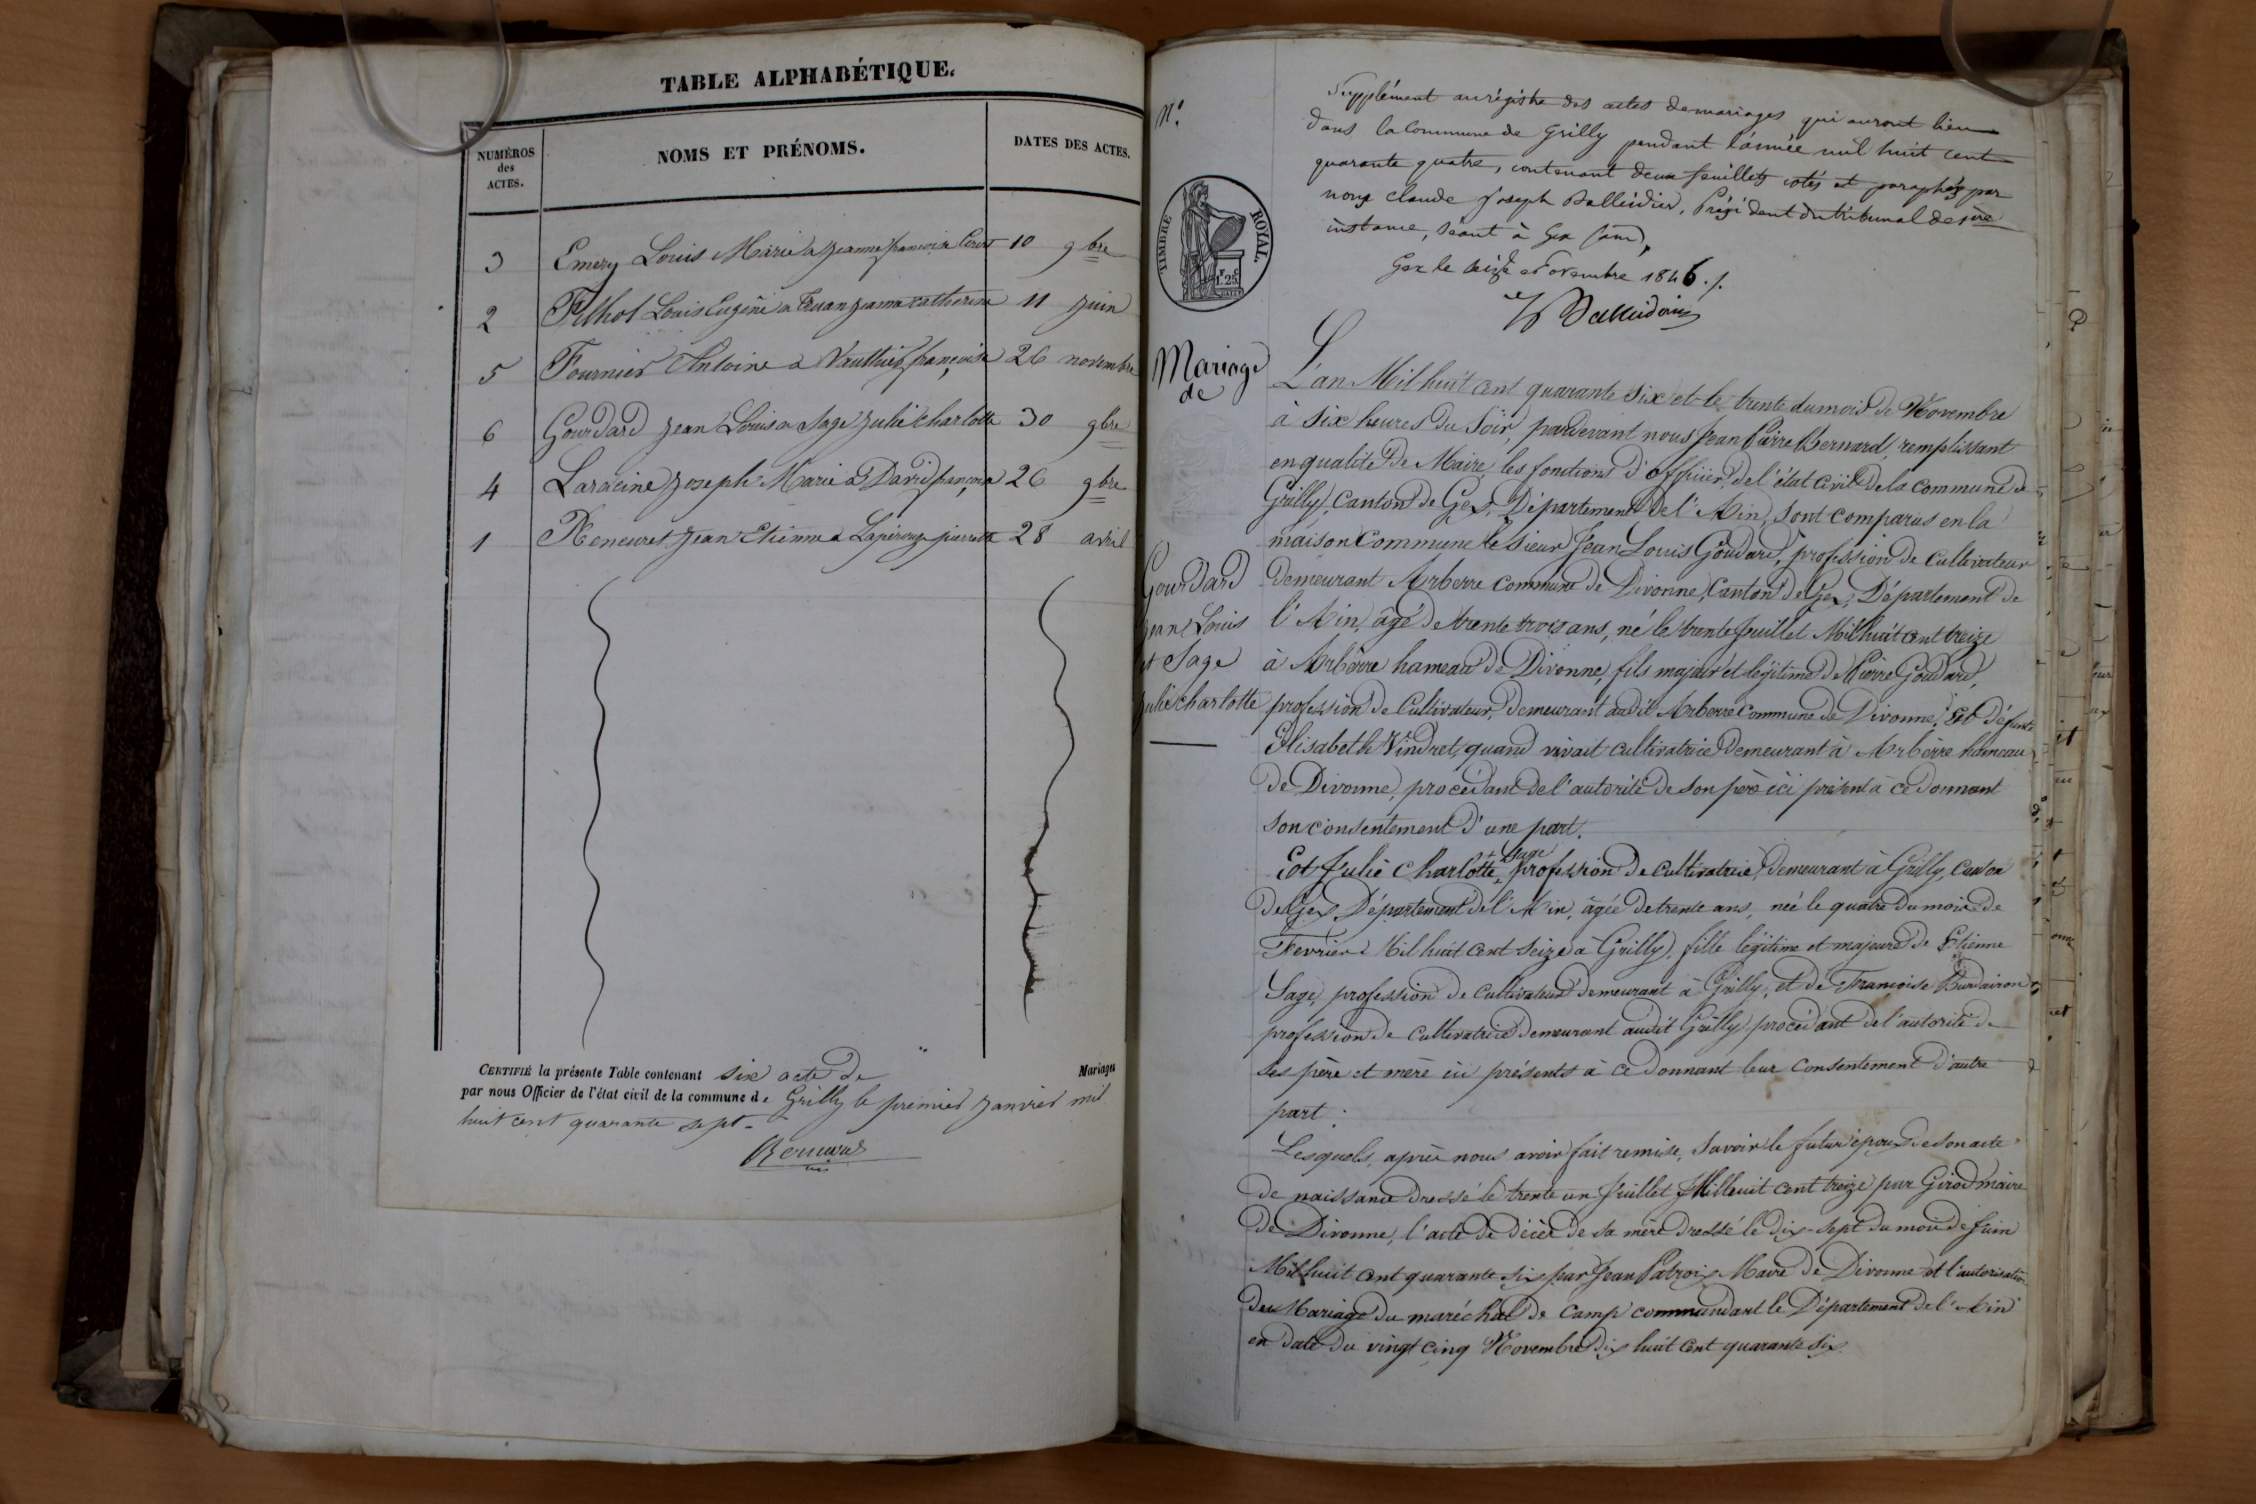 TABLE ALPHABÉTIQUE.
NUMÉROS des ACTES.
NOMS ET PRÉNOMS.
DATES DES ACTES.
3 Emery Louis Marie a Jeanne françoise 10 9bre
2 Louis Eugène a Jeanne Catherine 11 juin
5 Fournier Antoine a Vauthier françoise 26 novembre
6 Gourdard Jean Louis a Sage Julie charlotte 30 9bre
4 Laracine Joseph Marie a David françoise 26 9bre
1 Jean Etienne a pierrette 28 avril
CERTIFIÉ la présente Table contenant six acte de Mariages
par nous Officier de l'état civil de la commune de Grilly le premier Janvier mil
huit cent quarante sept.
N°.
Supplément au régistre des actes de mariages qui auront lieu
dans la Commune de Grilly pendant l'année mil huit cent
quarante quatre, contenant deux feuillets cotés et paraphés par
nous Claude Joseph Balleidier, Président du tribunal de 1ère
instance, séant à Gex (ain),
Gex le seize Novembre 1846 ./.
TIMBRE ROYAL.
1F 25C
Mariage
de
Gourdard
Jean Louis
et Sage
Julie charlotte
L'an Mil huit cent quarante six et le trente du mois de Novembre
à six heures du Soir, pardevant nous Jean Pierre Bernard, remplissant
en qualité de Maire, les fonctions d'officier de l'état civil de la commune de
Grilly, Canton de Gex, Département de l'Ain, sont comparus en la
maison Commune le sieur Jean Louis Goudard, profession de Cultivateur
Demeurant Arberre commune de Divonne, Canton de Gex, Département de
l'Ain, âgé de trente trois ans, né le trente Juillet Mil huit cent treize
à Arberre hameau de Divonne, fils majeur et légitime de Pierre Goudard,
profession de Cultivateur, demeurant audit Arberre commune de Divonne, Et Défunte
Elisabeth Vindret, quand vivait cultivatrice Demeurant à Arberre hameau
de Divonne, procédant de l'autorité de son père ici présent à ce donnant
son consentement d'une part.
Et Julie Charlotte Sage profession de cultivatrice, demeurant à Grilly, Canton
de Gex, Département de l'Ain, âgée de trente ans, née le quatre du mois de
Fevrier Mil huit cent seize à Grilly, fille légitime et majeure de Etienne
Sage, profession de Cultivateur demeurant à Grilly, et de Françoise Burdairon
profession de cultivatrice demeurant audit Grilly procédant de l'autorité de
ses père et mère ici présents à ce donnant leur Consentement d'autre
part.
Lesquels, après nous avoir fait remise, savoir le futur époux de son acte
de naissance dressé le trente un Juillet Mil huit cent treize par Girod maire
de Divonne, l'acte de décès de sa mère dressé le dix-sept du mois de Juin
Mil huit cent quarante six par Jean Patroix Maire de Divonne et l'autorisation
de Mariage du maréchal de Camp commandant le Département de l'Ain
en date du vingt cinq Novembre dix huit cent quarante six